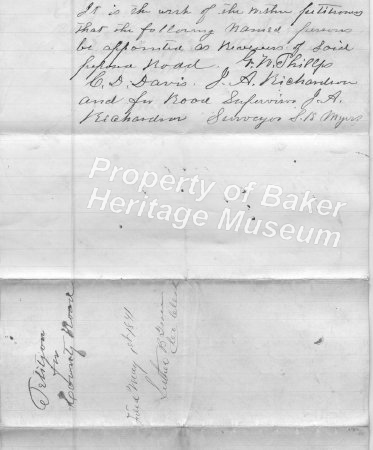 It is the wish of the within petitioners
that the following named persons
be appointed as viewers of said
proposed Road. W. R. Phillips
C. D. Davis. J. A. Richardson
and for Road Supervisor J. A.
Richardson Surveyor S. B. Myers
Property of Baker
Heritage Museum
Petition
for
County Road
Filed May 1st
Luther B
Co. Clerk